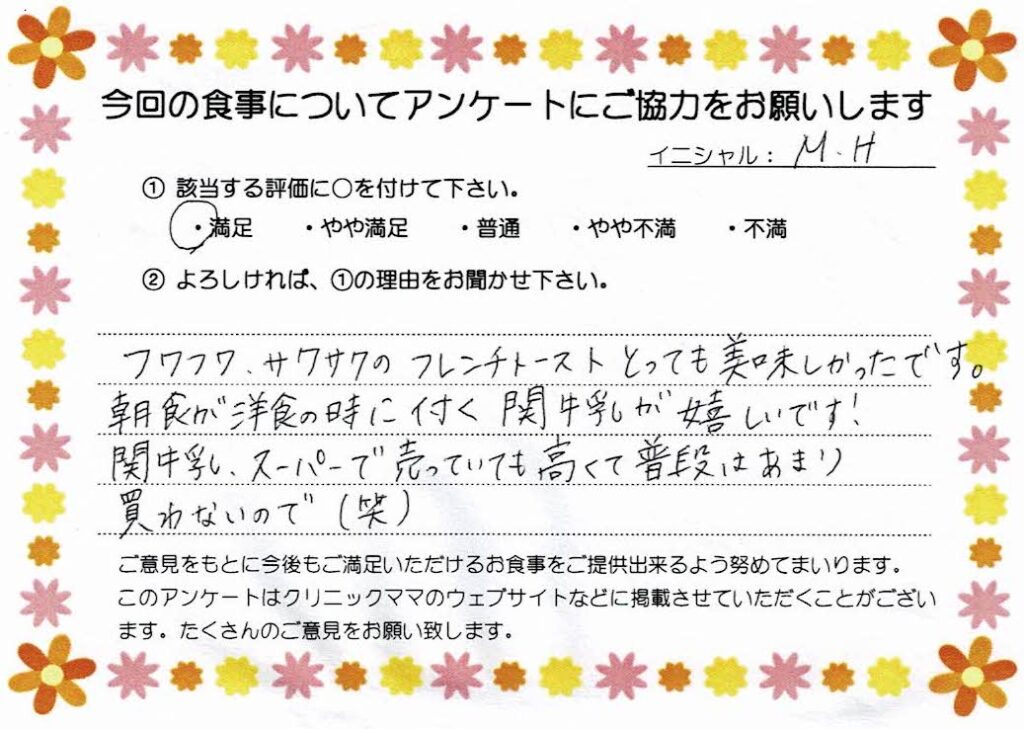 今回の食事についてアンケートにご協力をお願いします
イニシャル： M.H
① 該当する評価に○を付けて下さい。
・満足 ・やや満足 ・普通 ・やや不満 ・不満
② よろしければ、①の理由をお聞かせ下さい。
フワフワ、サクサクの フレンチトースト とっても美味しかったです。
朝食が洋食の時に付く 関牛乳が 嬉しいです！
関牛乳、スーパーで売っていても高くて普段はあまり
買わないので（笑）
ご意見をもとに今後もご満足いただけるお食事をご提供出来るよう努めてまいります。
このアンケートはクリニックママのウェブサイトなどに掲載させていただくことがござい
ます。たくさんのご意見をお願い致します。